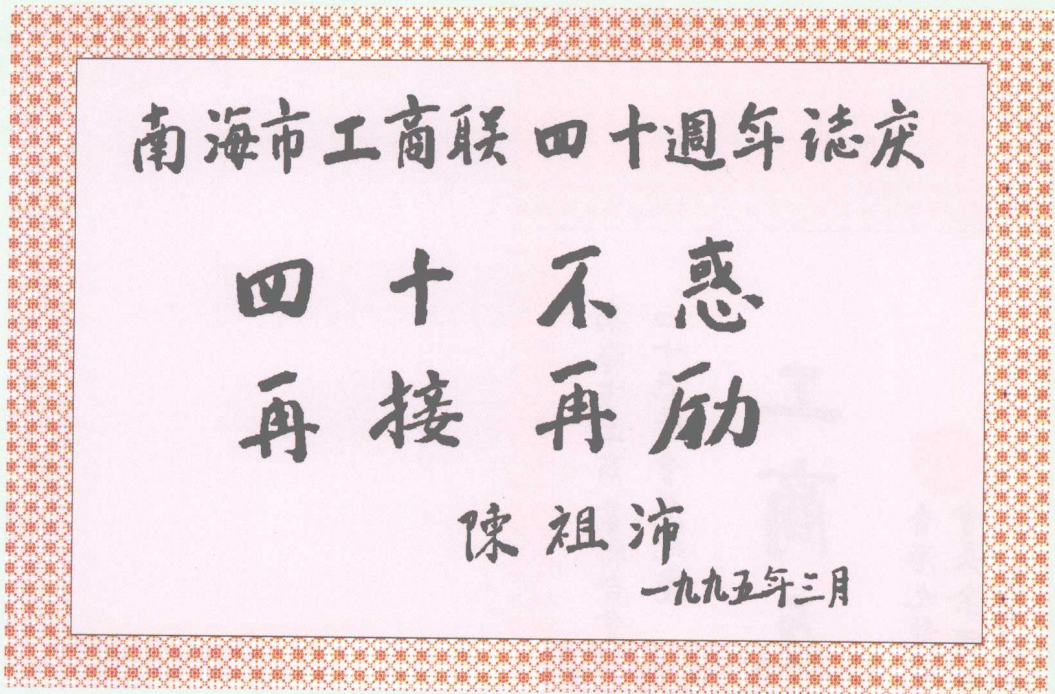 南海市工商联四十週年誌庆
四十不惑
再接再励
陈祖沛
一九九五年三月